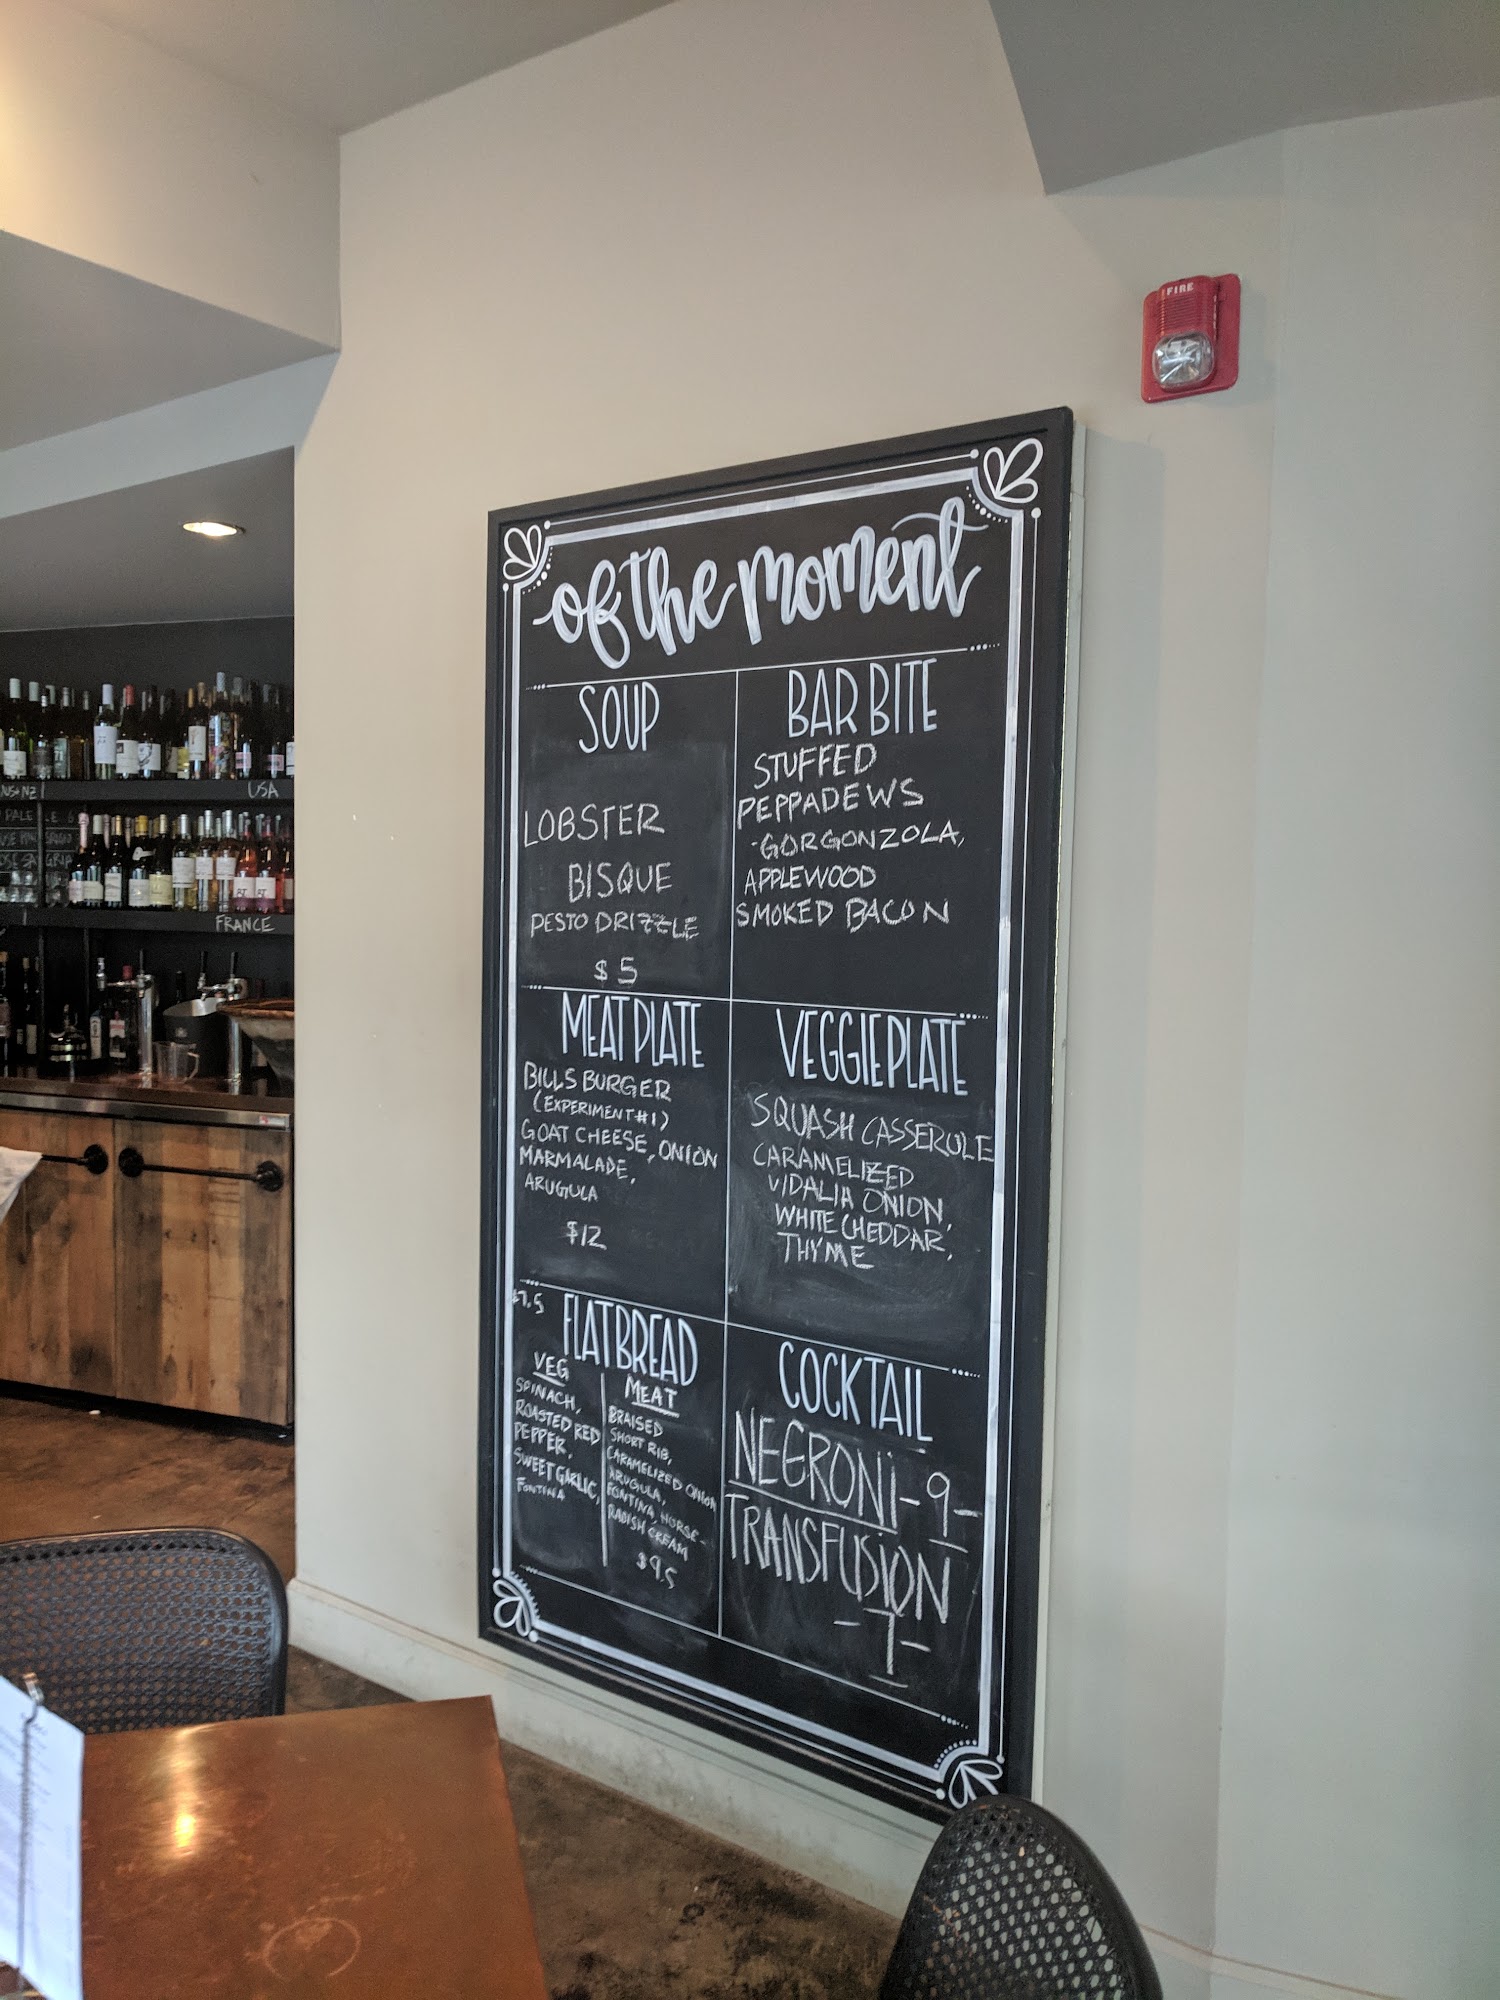 FIRE
of the moment
SOUP
LOBSTER
BISQUE
PESTO DRIZZLE
$5
BAR BITE
STUFFED
PEPPADEWS
-GORGONZOLA,
APPLEWOOD
SMOKED BACON
MEAT PLATE
BILLS BURGER
(EXPERIMENT #1)
GOAT CHEESE, ONION
MARMALADE,
ARUGULA
$12
VEGGIE PLATE
SQUASH CASSEROLE
CARAMELIZED
VIDALIA ONION,
WHITE CHEDDAR,
THYME
$7.5
FLATBREAD
VEG
SPINACH,
ROASTED RED
PEPPER,
SWEET GARLIC,
FONTINA
MEAT
BRAISED
SHORT RIB,
CARAMELIZED ONION
ARUGULA,
FONTINA, HORSE-
RADISH CREAM
$9.5
COCKTAIL
NEGRONI-9-
TRANSFUSION
-7-
USA
FRANCE